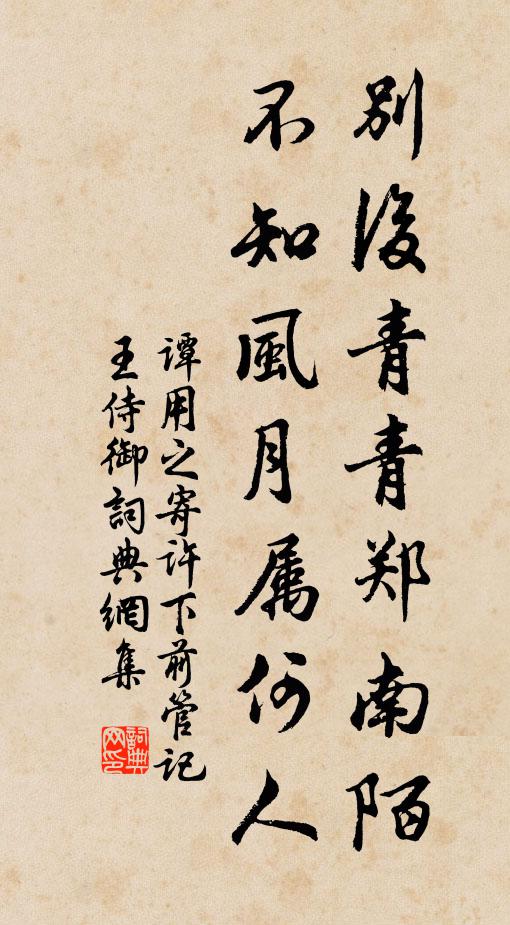 别後青青郑南陌
不知風月属何人
谭用之寄许下前管记
王侍御詞典網集
詞典
网印